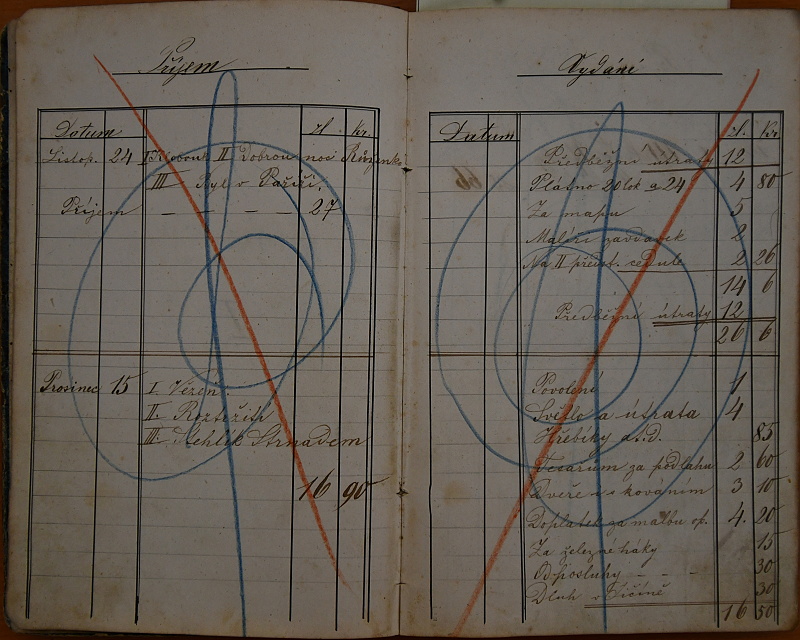 Příjem
Datum zl. Kr.
Listop. 24 I Klobouk II Dobrou noc Růženko
III v Paříži.
Příjem — — — 27
Prosinec 15 I. Vězeň
II. Roztržití
III. Stehlík Strnadem
16 90
Vydání
Datum zl. Kr.
Předběžní útraty 12
Plátno 20 lok a 24 4 80
Za mapu 5
Malíři závdavek 2
Na II předst. cedule 2 26
14 6
Předběžní útraty 12
26 6
Povolení 1
Světlo a útrata 4
Hřebíky a.t.d. 85
Tesařům za podlahu 2 60
Dveře s kováním 3 10
Doplatek za malbu op. 4. 20
Za železné háky 15
Od posluhy — — 30
Dluh v Jičíně 30
16 50